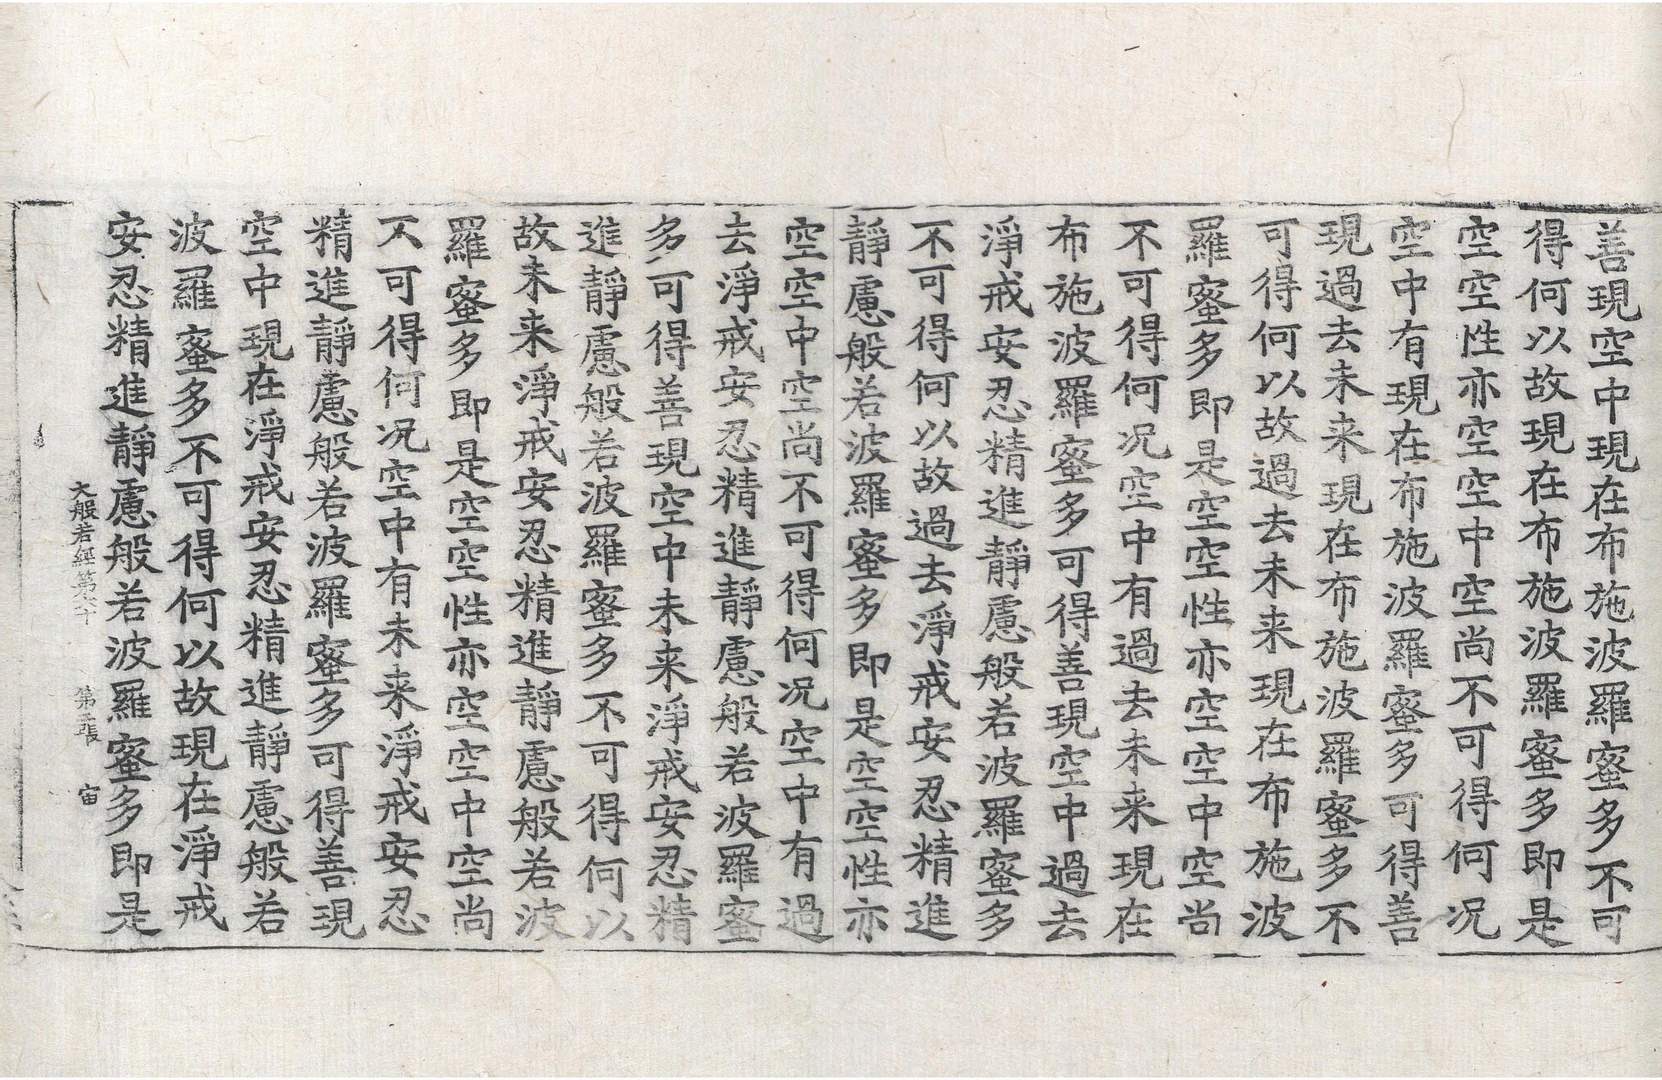 善現空中現在布施波羅蜜多不可
得何以故現在布施波羅蜜多即是
空空性亦空空中空尚不可得何况
空中有現在布施波羅蜜多可得善
現過去未来現在布施波羅蜜多不
可得何以故過去未来現在布施波
羅蜜多即是空空性亦空空中空尚
不可得何况空中有過去未来現在
布施波羅蜜多可得善現空中過去
淨戒安忍精進靜慮般若波羅蜜多
不可得何以故過去淨戒安忍精進
靜慮般若波羅蜜多即是空空性亦
空空中空尚不可得何况空中有過
去淨戒安忍精進靜慮般若波羅蜜
多可得善現空中未来淨戒安忍精
進靜慮般若波羅蜜多不可得何以
故未来淨戒安忍精進靜慮般若波
羅蜜多即是空空性亦空空中空尚
不可得何况空中有未来淨戒安忍
精進靜慮般若波羅蜜多可得善現
空中現在淨戒安忍精進靜慮般若
波羅蜜多不可得何以故現在淨戒
安忍精進靜慮般若波羅蜜多即是
大般若經第六十 第五張 宙